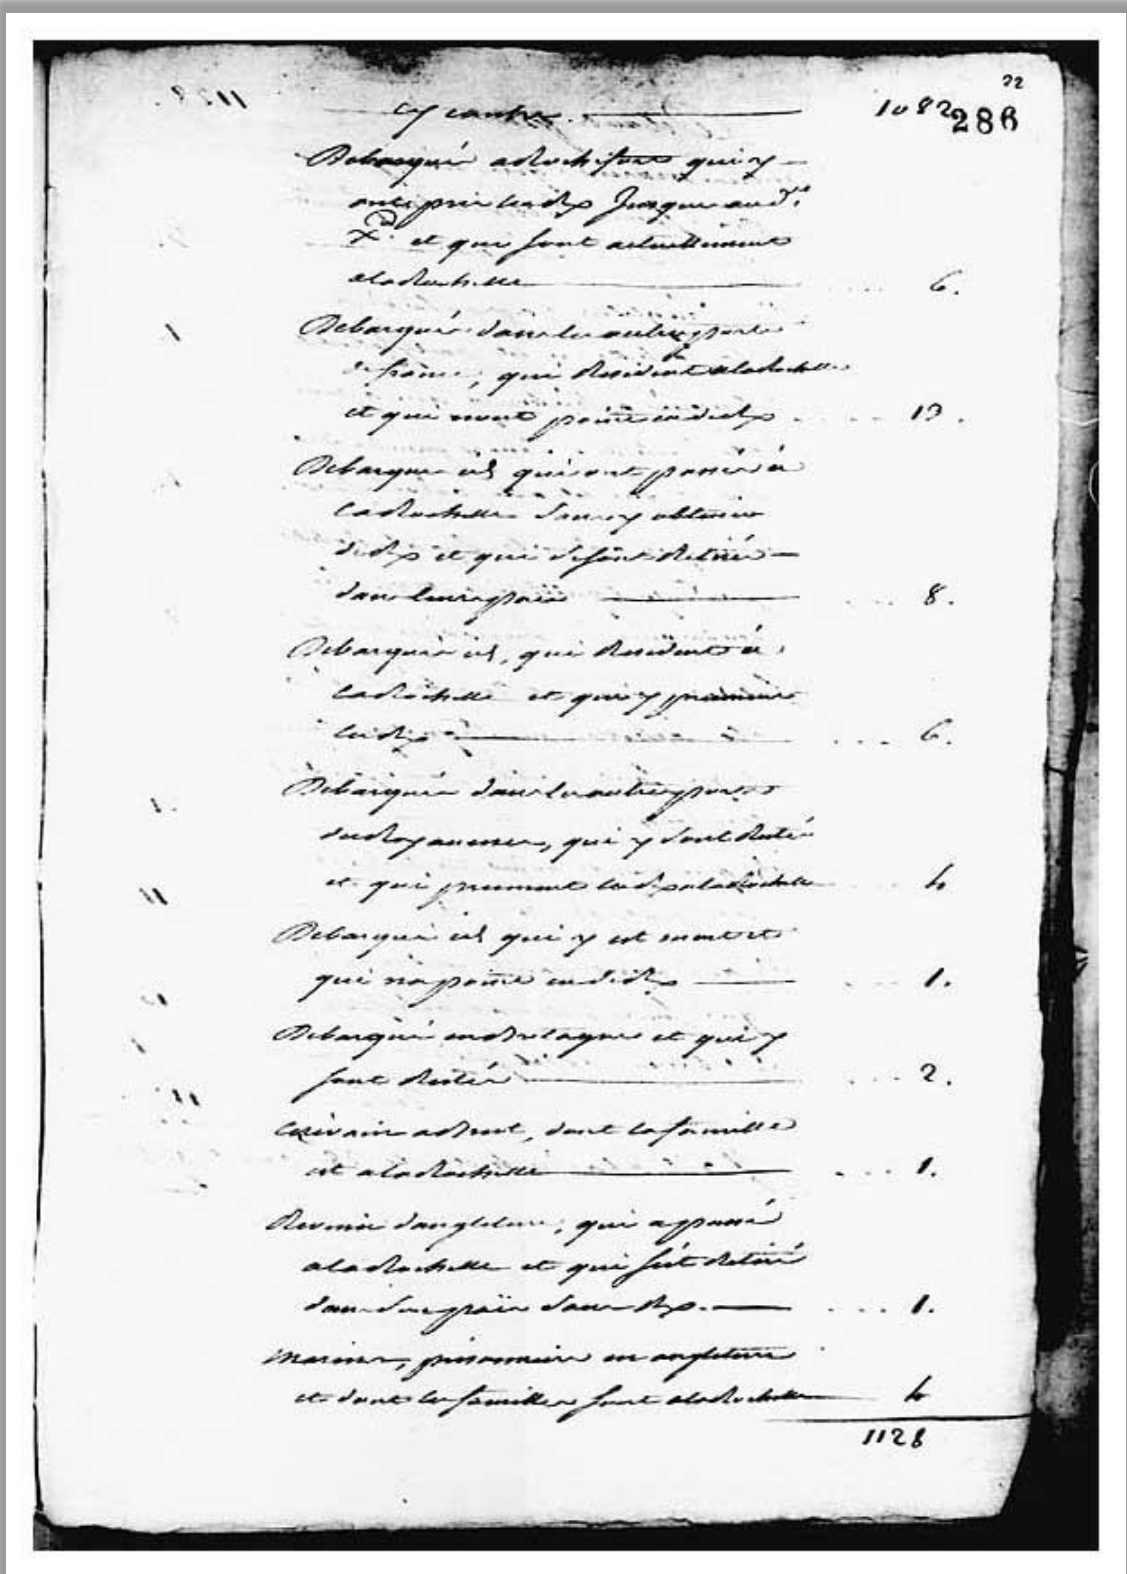 cy contre. 1082
22
286
Debarqués a Rochefort qui y
ont pris jusqu'au
et qui sont actuellement
a la Rochelle 6.
Debarqués dans les autres ports
de france, qui Resident a la Rochelle
et qui n'ont point eu de 13.
Debarqués id, qui ont passés a
La Rochelle sans y obtenir
de et qui se sont Retirés
dans leurs païs 8.
Debarqués id, qui Resident a
La Rochelle et qui y prennent
6.
Debarqués dans les autres ports
du Royaume, qui y sont Restés
et qui prennent a la Rochelle 4
Debarqué id qui y est mort et
qui n'a point eu de 1.
Debarqués en Bretagne et qui y
sont Restés 2.
Ecrivain a Brest, dont la famille
est a la Rochelle 1.
Revenu d'angleterre, qui a passé
a la Rochelle et qui s'est Retiré
dans son païs sans 1.
Marins, prisonniers en angleterre
et dont les familles sont a la Rochelle 4
1128